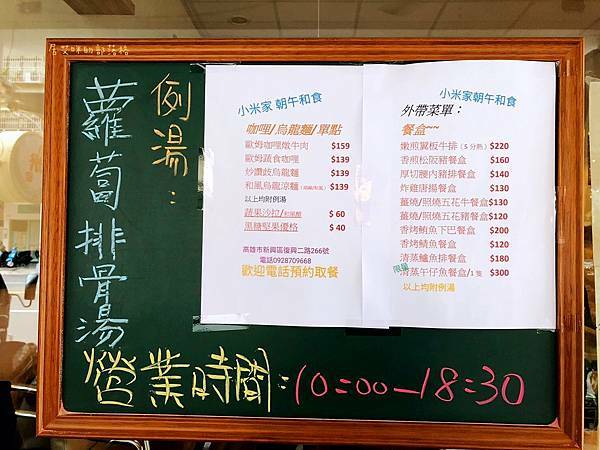 居艾咪的部落格
例湯：
蘿蔔排骨湯
小米家 朝午和食
咖哩/烏龍麵/單點
歐姆咖哩燉牛肉 $159
歐姆蔬食咖哩 $139
炒讚歧烏龍麵 $139
和風烏龍涼麵 $139
以上均附例湯
蔬果沙拉/和風醋 $ 60
黑糖堅果優格 $ 40
高雄市新興區復興二路266號
電話0928709668
歡迎電話預約取餐
小米家朝午和食
外帶菜單：
餐盒~~
嫩煎翼板牛排（5 分熟） $220
香煎松阪豬餐盒 $160
厚切腰內豬排餐盒 $140
炸雞唐揚餐盒 $130
薑燒/照燒五花牛餐盒$130
薑燒/照燒五花豬餐盒$120
香烤鮪魚下巴餐盒 $200
香烤鯖魚餐盒 $130
清蒸鱸魚排餐盒 $180
限量 清蒸午仔魚餐盒/1 隻 $300
以上均附例湯
營業時間：10:00－18:30